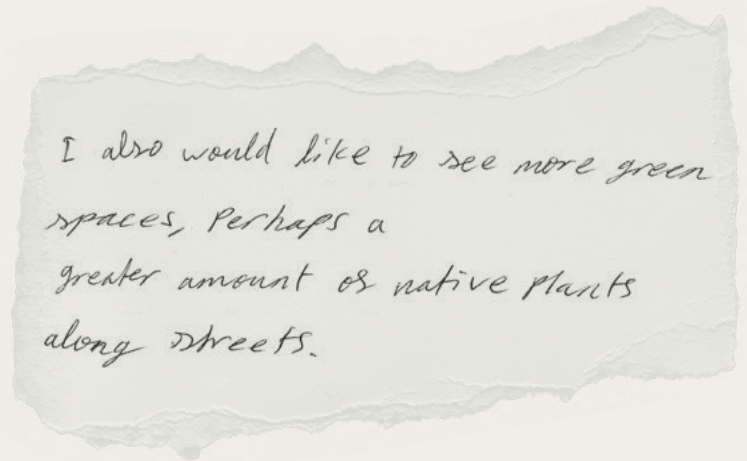 I also would like to see more green
spaces, Perhaps a
greater amount of native plants
along streets.